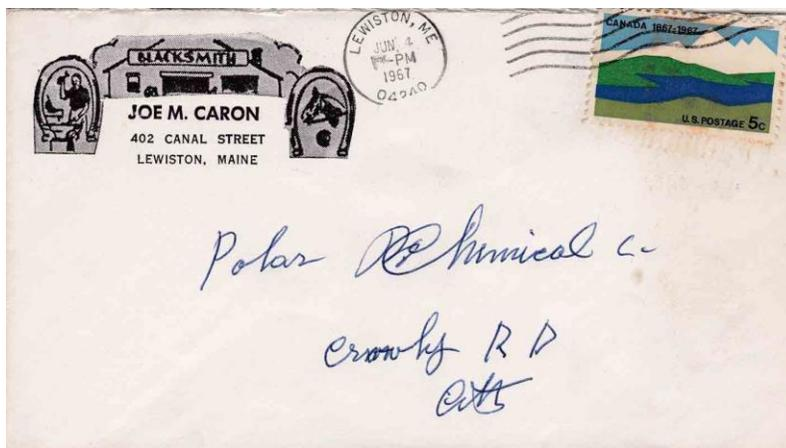 BLACKSMITH
JOE M. CARON
402 CANAL STREET
LEWISTON, MAINE
LEWISTON, ME
JUN 4
PM
1967
04240
CANADA 1867-1967
U.S. POSTAGE 5c
Polar Chemical Co
Crowly R D
City